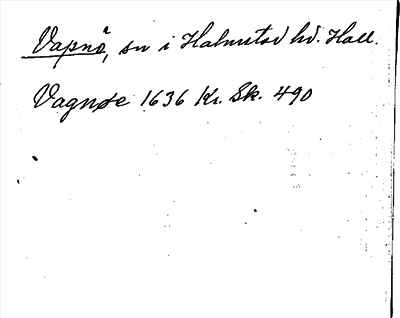 Vapnö, sn i Halmstad hd. Hall.
Vagnøe 1636 Kr. Sk. 490